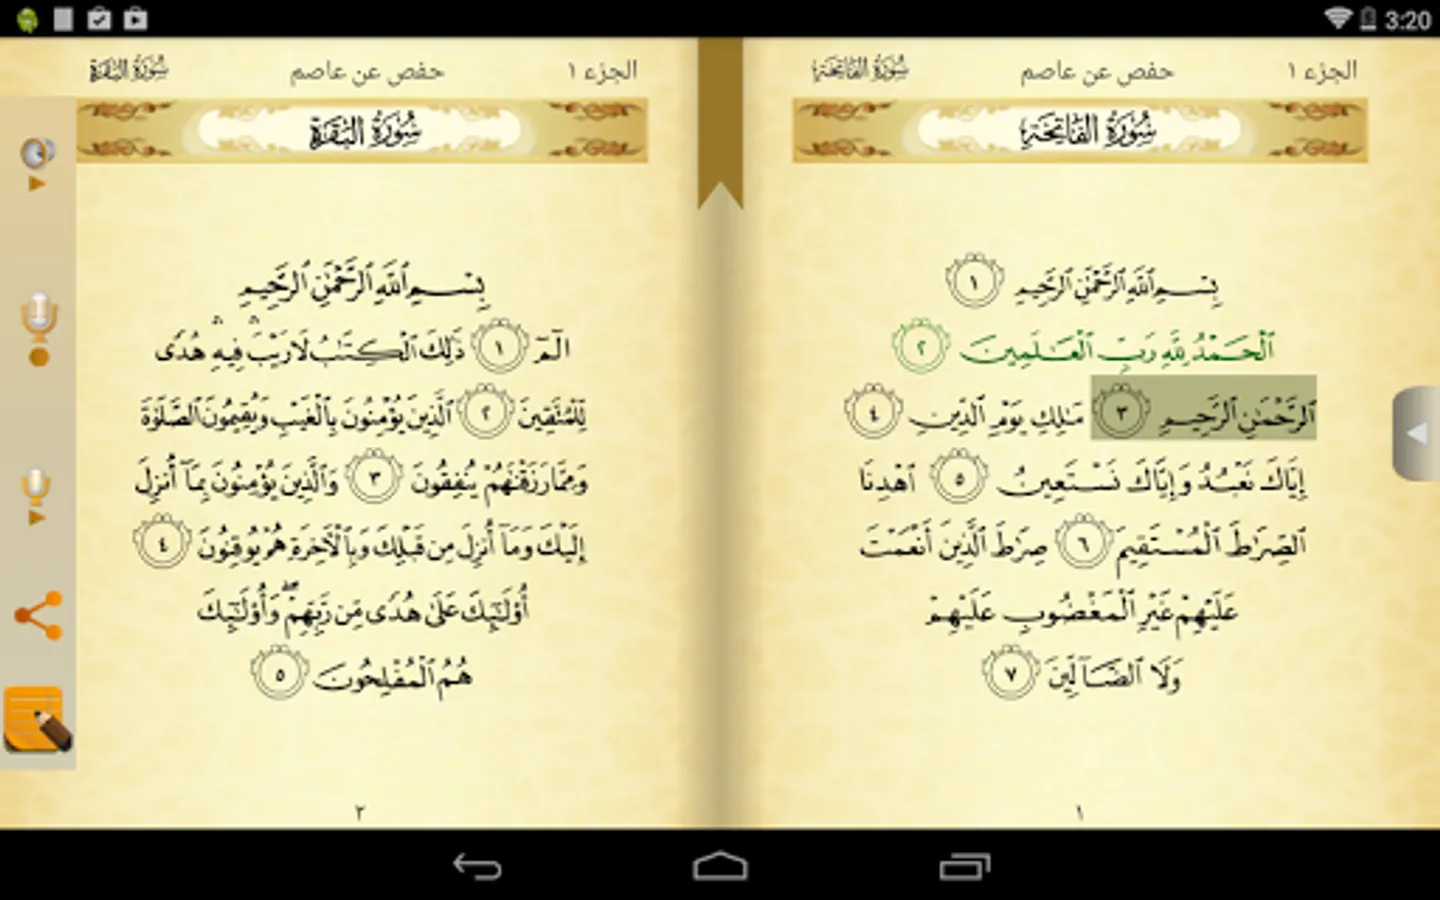 3:20
الجزء ١
حفص عن عاصم
سُورَةُ الفَاتِحَةِ
سُورَةُ الفَاتِحَةِ
بِسْمِ ٱللَّهِ ٱلرَّحْمَٰنِ ٱلرَّحِيمِ ١
ٱلْحَمْدُ لِلَّهِ رَبِّ ٱلْعَٰلَمِينَ ٢
ٱلرَّحْمَٰنِ ٱلرَّحِيمِ ٣ مَٰلِكِ يَوْمِ ٱلدِّينِ ٤
إِيَّاكَ نَعْبُدُ وَإِيَّاكَ نَسْتَعِينُ ٥ ٱهْدِنَا
ٱلصِّرَٰطَ ٱلْمُسْتَقِيمَ ٦ صِرَٰطَ ٱلَّذِينَ أَنْعَمْتَ
عَلَيْهِمْ غَيْرِ ٱلْمَغْضُوبِ عَلَيْهِمْ
وَلَا ٱلضَّآلِّينَ ٧
١
الجزء ١
حفص عن عاصم
سُورَةُ البَقَرَةِ
سُورَةُ البَقَرَةِ
بِسْمِ ٱللَّهِ ٱلرَّحْمَٰنِ ٱلرَّحِيمِ
الٓمٓ ١ ذَٰلِكَ ٱلْكِتَٰبُ لَا رَيْبَ ۛ فِيهِ ۛ هُدًى
لِّلْمُتَّقِينَ ٢ ٱلَّذِينَ يُؤْمِنُونَ بِٱلْغَيْبِ وَيُقِيمُونَ ٱلصَّلَوٰةَ
وَمِمَّا رَزَقْنَٰهُمْ يُنفِقُونَ ٣ وَٱلَّذِينَ يُؤْمِنُونَ بِمَآ أُنزِلَ
إِلَيْكَ وَمَآ أُنزِلَ مِن قَبْلِكَ وَبِٱلْأَخِرَةِ هُمْ يُوقِنُونَ ٤
أُو۟لَٰٓئِكَ عَلَىٰ هُدًى مِّن رَّبِّهِمْ ۖ وَأُو۟لَٰٓئِكَ
هُمُ ٱلْمُفْلِحُونَ ٥
٢